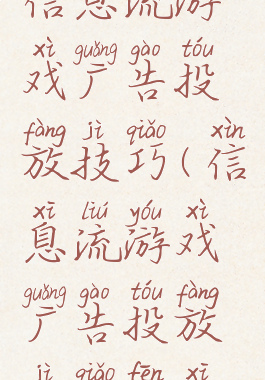 信息流游
xì guǎng gào tóu
戏广告投
fàng jì qiǎo xìn
放技巧(信
xī liú yóu xì
息流游戏
guǎng gào tóu fàng
广告投放
jì qiǎo fēn xī